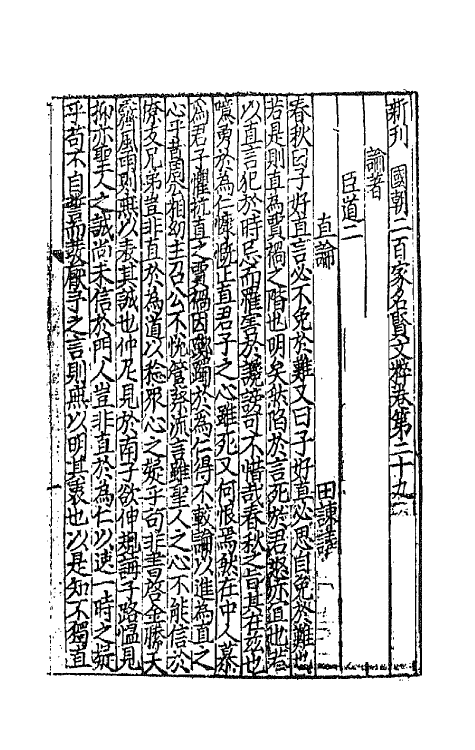 新刊國朝二百家名賢文粹卷第二十九
論著
臣道二
直論 田諫議
春秋曰子好直言必不免於難又曰子好直必思自免於難也
若是則直為賈禍之階也明矣然怕於言死於君
以直言犯於時忌而罹害於讒謗可不惜哉春秋之旨其在茲也
噫勇於為仁慷慨正直君子之心雖死又何恨焉然在中人慕
為君子懼抗直之賈禍因
心乎昔周公相幼主召公不悅管蔡流言雖聖人之心不能信於
僚友兄弟豈非直於為道以稔眾心之疑乎苟非書啓金縢天
發風雨則無以表其誠也仲尼見於南子欲伸規誨子路慍見
抑亦聖人之誠尚未信於門人豈非直於為仁以速一時之疑
乎苟不自誓而發厭予之言則無以明其衷也以是知不獨直